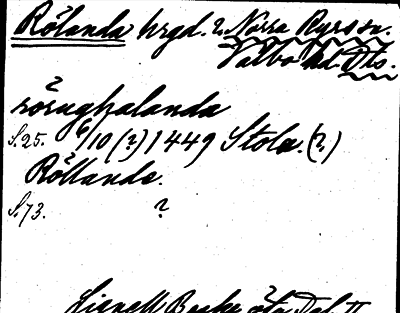 Rölanda hrgd. 2. Norra Ryrs sn.
Valbo hd Dls.
rörughalanda
S.25. 6/10 (?) 1449 Stola. (?)
Röllanda.
S.73. ?
Lignell Beskr. Dal II